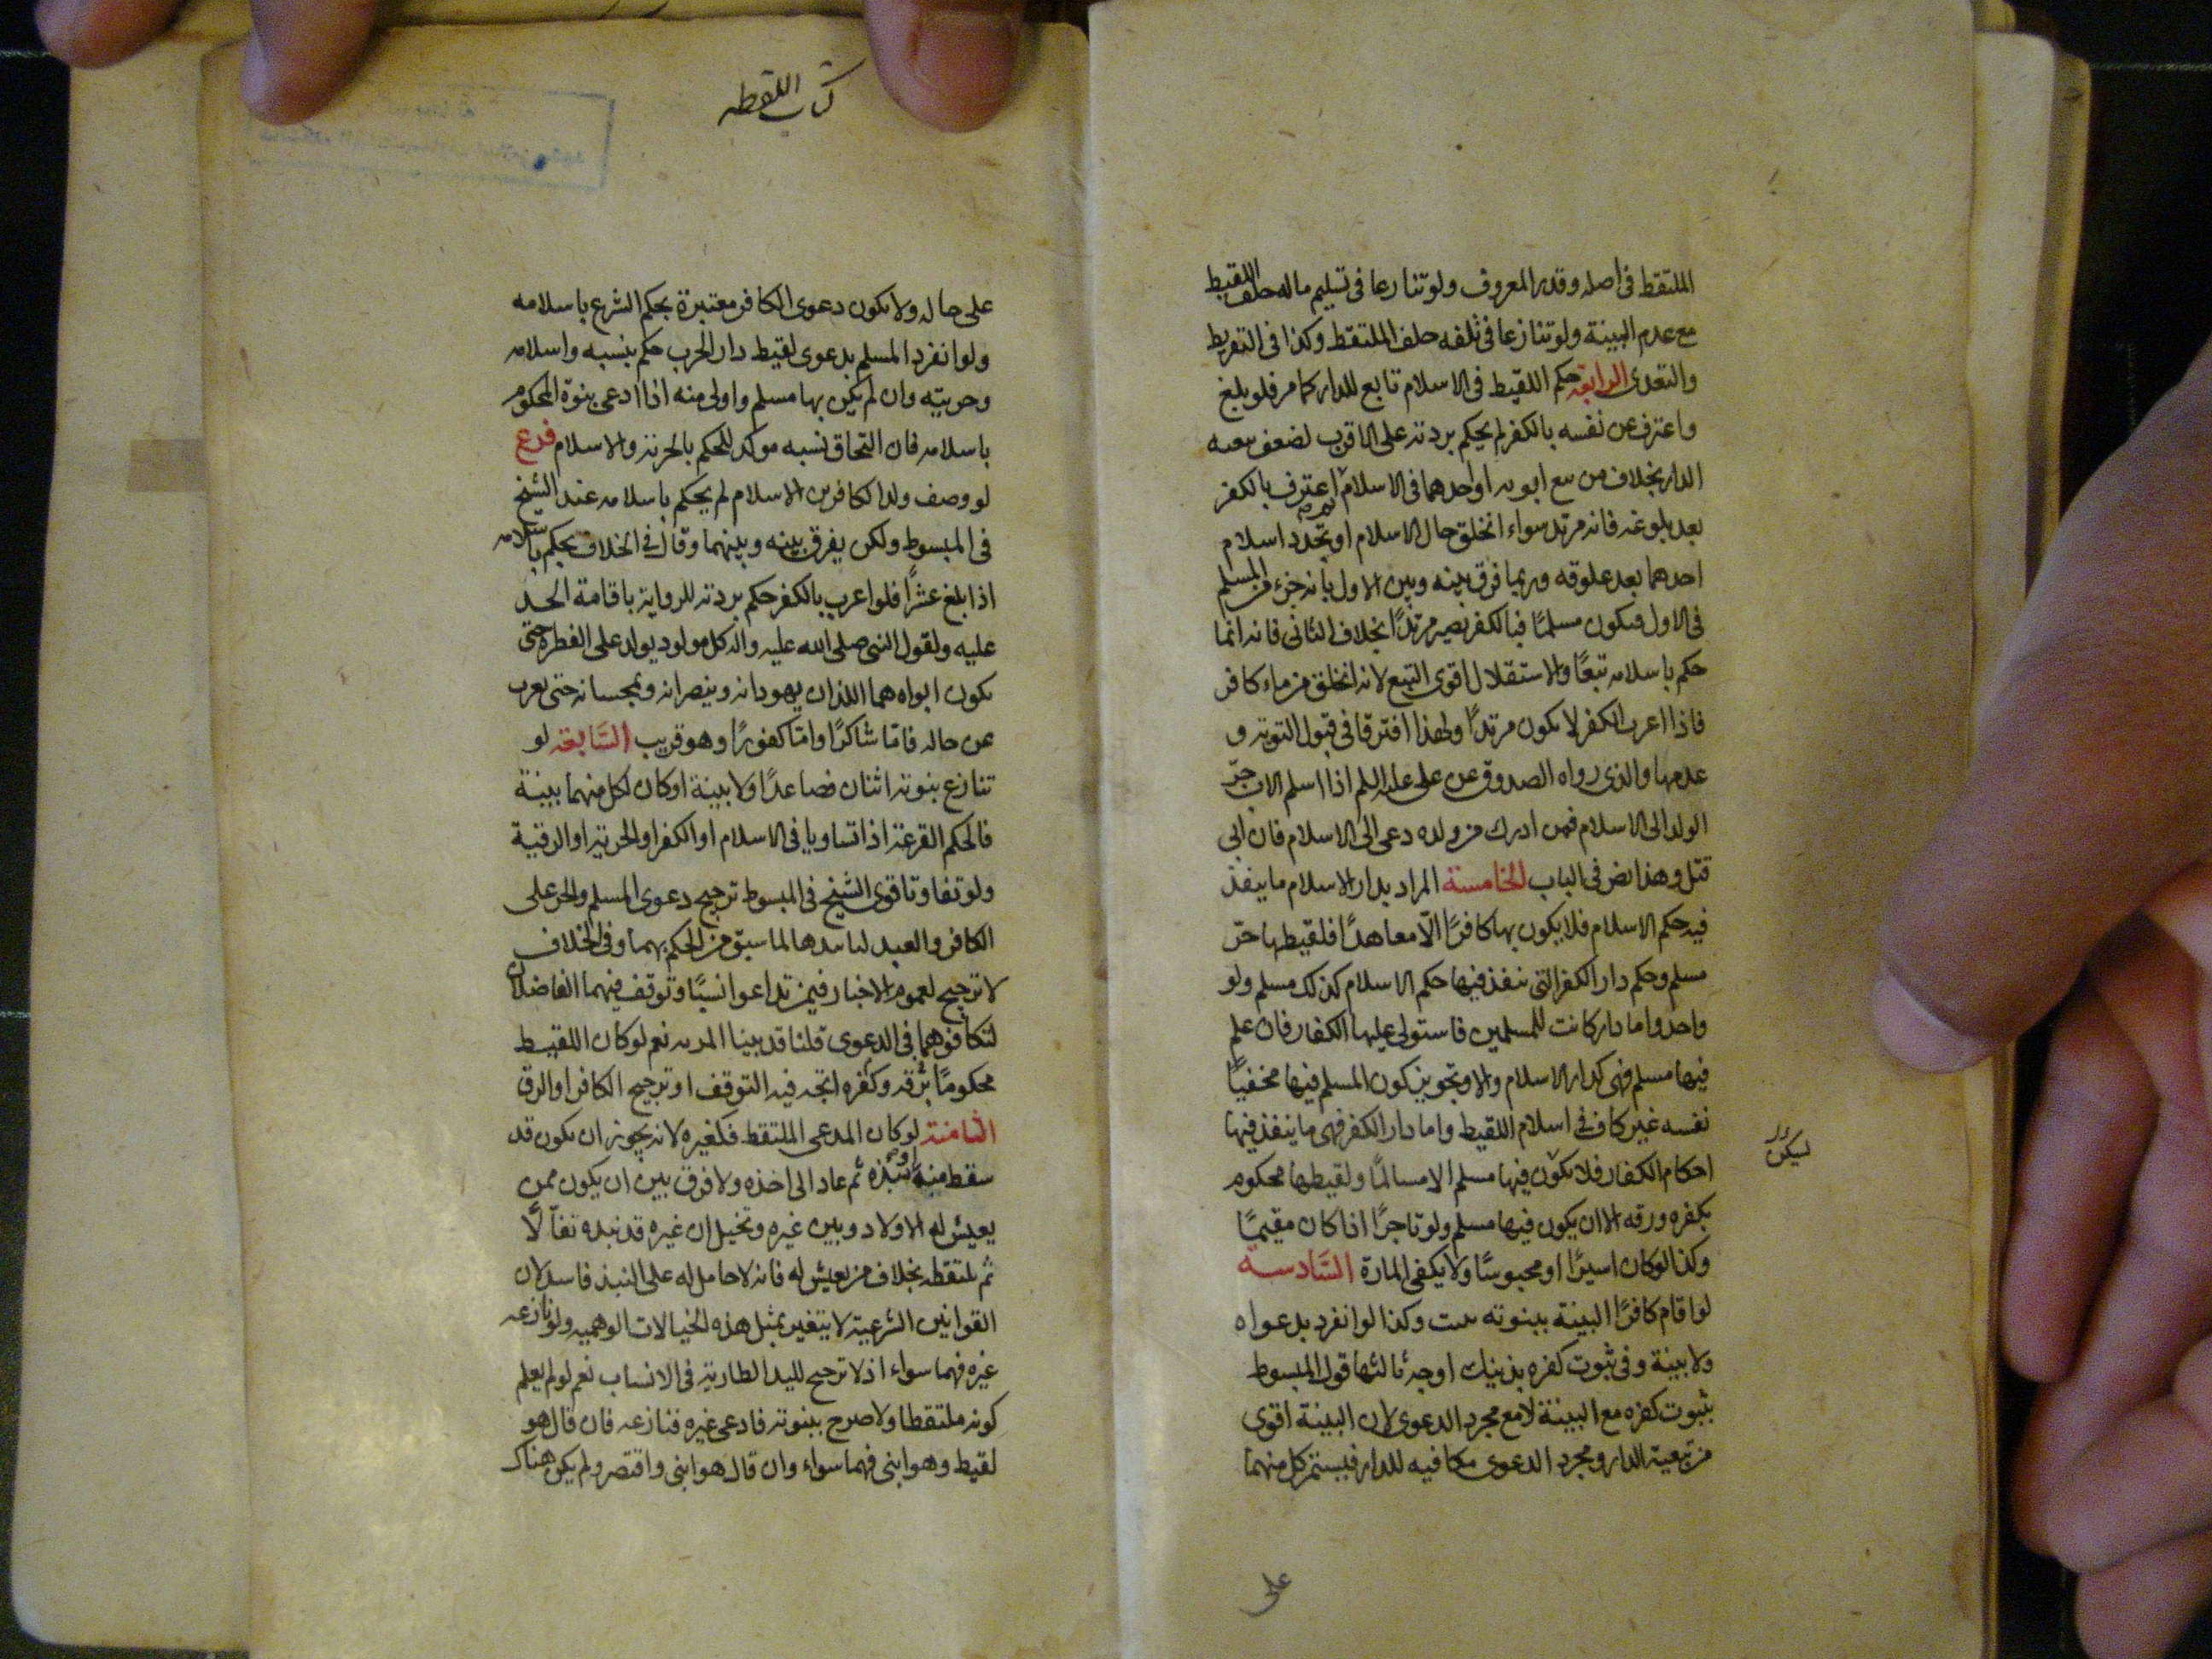 الملتقط فى اصله وقدر المعروف ولو تنازعا فى تسليم ماله حلف اللقيط
مع عدم البينة ولو تنازعا فى تلفه حلف الملتقط وكذا فى التفريط
والتعدى الرابعة حكم اللقيط فى الاسلام تابع للدار كما مر فلو بلغ
واعترف عن نفسه بالكفر لم يحكم بردته على الاقرب لضعف تبعية
الدار بخلاف من تبع ابويه او احدهما فى الاسلام ثم اعترف بالكفر
بعد بلوغه فانه مرتد سواء انخلق حال الاسلام او تجدد اسلام
احدهما بعد علوقه وربما فرق بينه وبين الاول بانه جزء من المسلم
فى الاول فيكون مسلمًا فبالكفر يصير مرتدًا بخلاف الثانى فانه انما
حكم باسلامه تبعًا والاستقلال اقوى التبع لانه انخلق من ماء كافر
فاذا اعرب الكفر لا يكون مرتدًا ولهذا افترقا فى قبول التوبة و
عدمها والذى رواه الصدوق عن على عليه السلم اذا اسلم الاب جرّ
الولد الى الاسلام فمن ادرك من ولده دعى الى الاسلام فان ابى
قتل وهذا نص فى الباب الخامسة المراد بدار الاسلام ما ينفذ
فيه حكم الاسلام فلا يكون بها كافرًا الّا معاهدًا فلقيطها حرّ
مسلم وحكم دار الكفر التى ينفذ فيها حكم الاسلام كذلك مسلم ولو
واحد واما دار كانت للمسلمين فاستولى عليها الكفار فان علم
فيها مسلم فهى كدار الاسلام والا وتجويز كون المسلم فيها مخفيًا
نفسه غير كاف فى اسلام اللقيط واما دار الكفر فهى ما ينفذ فيها
احكام الكفار فلا يكون فيها مسلم الا مسالمًا ولقيطها محكوم
بكفره ورقه الا ان يكون فيها مسلم ولو تاجرًا اذا كان مقيمًا
وكذا لو كان اسيرًا او محبوسًا ولا يكفى المارة السّادسة
لو اقام كافرًا البينة ببنوته وكذا لو انفرد بدعواه
ولا بينة وفى ثبوت كفره بذينك اوجه ثالثها قول المبسوط
بثبوت كفره مع البينة لا مع مجرد الدعوى لان البينة اقوى
من تبعية الدار ومجرد الدعوى مكافيه للدار فيستمر كل منهما
ليكن
على
كتاب اللقطه
على حاله ولا يكون دعوى الكافر معتبرة بحكم الشرع باسلامه
ولو انفرد المسلم بدعوى لقيط دار الحرب حكم بنسبه واسلامه
وحريته وان لم يكن بها مسلم واولى منه اذا ادعى بنوة المحكوم
باسلامه فان التحاق نسبه موكد للحكم بالحرية والاسلام فرع
لو وصف ولد الكافرين الاسلام لم يحكم باسلامه عند الشيخ
فى المبسوط ولكن يفرق بينه وبينهما وقال فى الخلاف يحكم باسلامه
اذا بلغ عشرًا فلو اعرب بالكفر حكم بردته للرواية باقامة الحد
عليه ولقول النبى صلى الله عليه واله كل مولود يولد على الفطرة حتى
يكون ابواه هما اللذان يهودانه وينصرانه ويمجسانه حتى يعرب
عن حاله فامّا شاكرًا وامّا كفورًا وهو قريب السّابعة لو
تنازع بنوته اثنان فصاعدًا ولا بينة او كان لكل منهما بينة
فالحكم القرعة اذا تساويا فى الاسلام او الكفر او الحرية او الرقية
ولو تفاوتا قوى الشيخ فى المبسوط ترجيح دعوى المسلم والحر على
الكافر والعبد لما سبق من الحكم بهما وفى الخلاف
لا ترجيح لعموم الاخبار فيمن تداعوا نسبًا وتوقف فيهما الفاضلان
لتكافوهما فى الدعوى قلنا قد بينا المزيه نعم لو كان اللقيط
محكومًا برقه وكفره اتجه فيه التوقف او ترجيح الكافر او الرق
الثامنة لو كان المدعى الملتقط فكغيره لانه يجوز ان يكون قد
سقط منه او نبذه ثم عاد الى اخذه ولا فرق بين ان يكون ممن
يعيش له الاولاد وبين غيره وتخيل ان غيره قد نبذه تفأّلًا
ثم يلتقطه بخلاف من يعيش له فانه لا حامل له على النبذ فاسد لان
القوانين الشرعية لا يتغير بمثل هذه الخيالات الوهميه ولو نازعه
غيره فهما سواء اذ لا ترجيح لليد الطارية فى الانساب نعم لو لم يعلم
كونه ملتقطا ولا صرح ببنوته فادعى غيره فنازعه فان قال هو
لقيط وهو ابنى فهما سواء وان قال هو ابنى واقتصر ولم يكن هناك